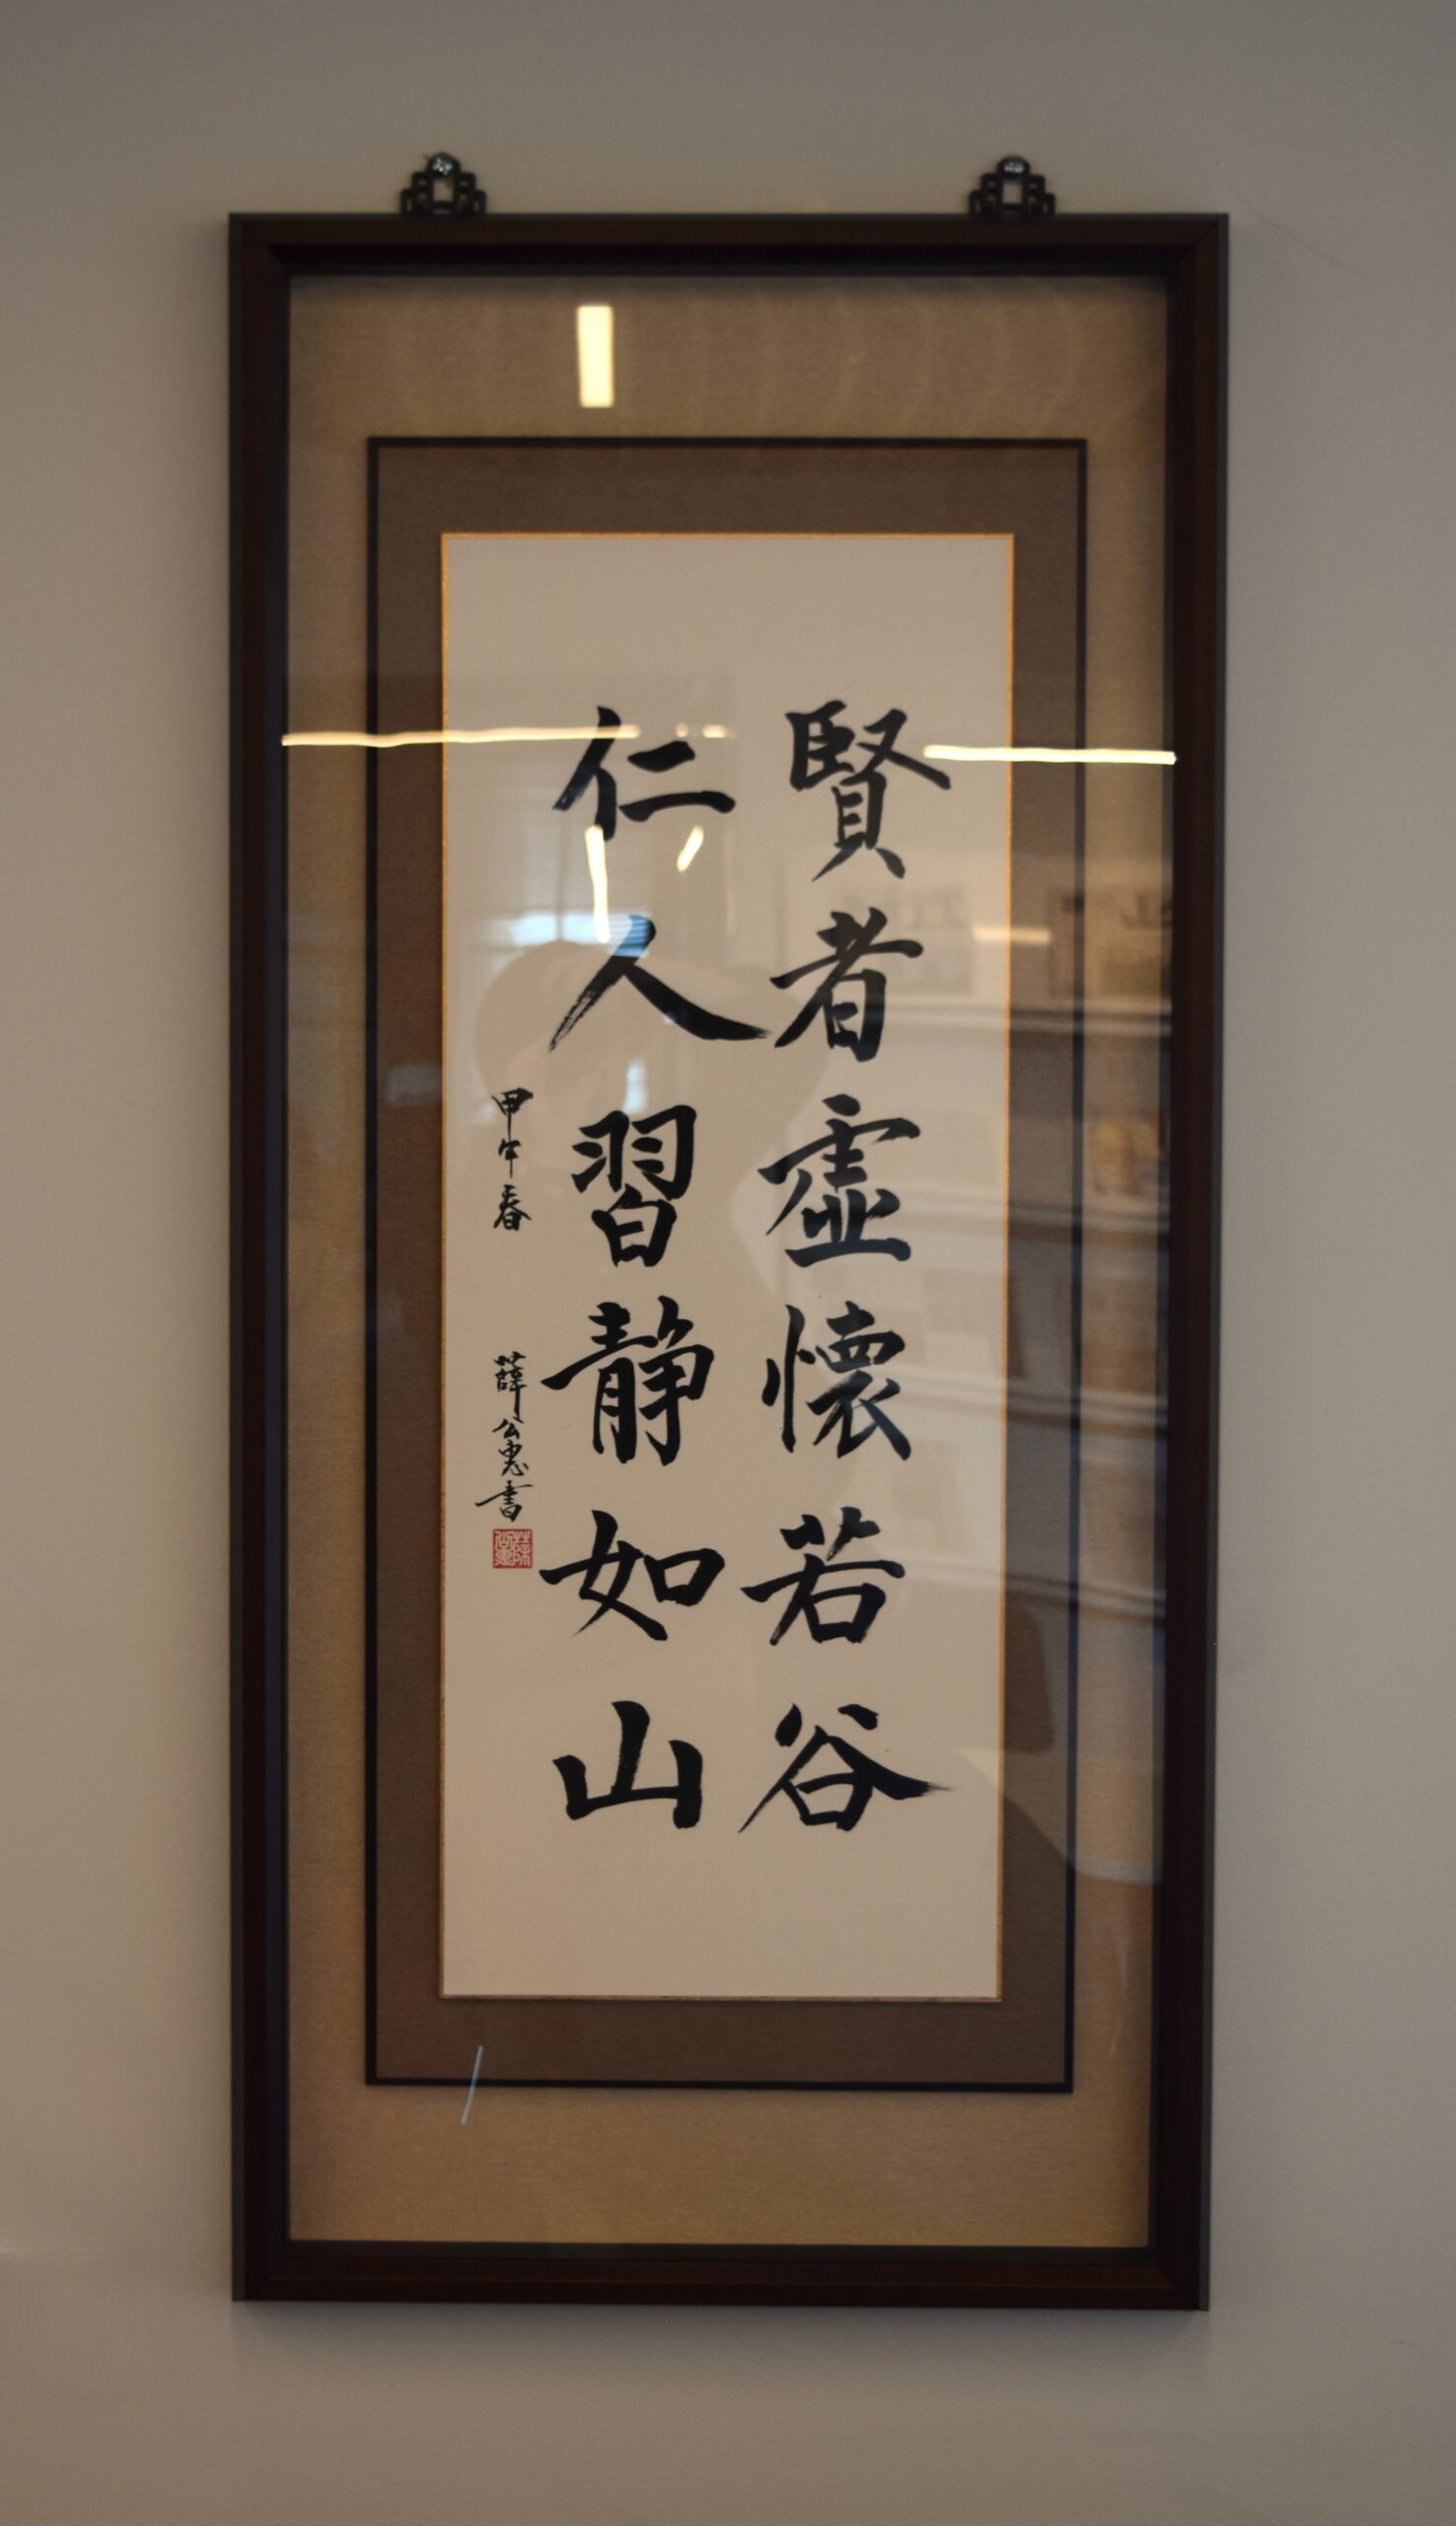 賢者虛懷若谷
仁人習靜如山
甲午春 薛公惠書